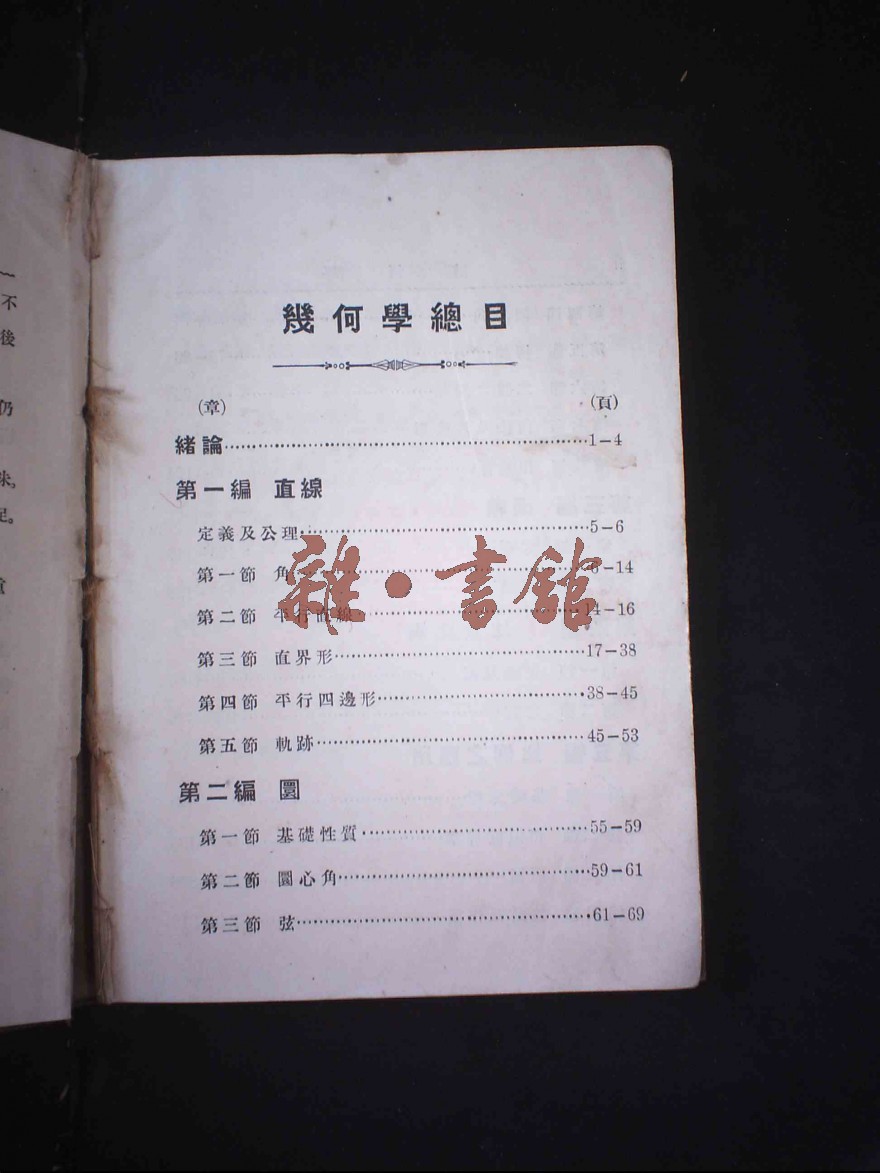 不
後
仍
味。
足。
幾何學總目
(章) (頁)
緒論……1-4
第一編 直線
定義及公理……5-6
第一節 角……6-14
第二節 平行直線……14-16
第三節 直界形……17-38
第四節 平行四邊形……38-45
第五節 軌跡……45-53
第二編 圜
第一節 基礎性質……55-59
第二節 圜心角……59-61
第三節 弦……61-69
雜·書館